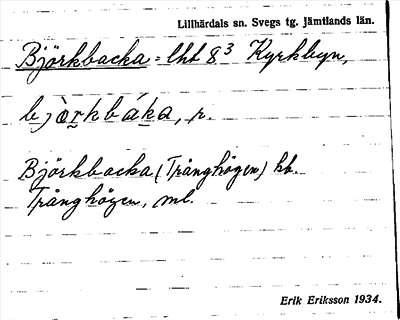 Lillhärdals sn. Svegs tg. Jämtlands län.
Björkbacka = lht 8³ Kyrkbyn,
bjò̰rkbáka, r.
Björkbacka (Trånghögen) hb.
Trånghögen, ml.
Erik Eriksson 1934.